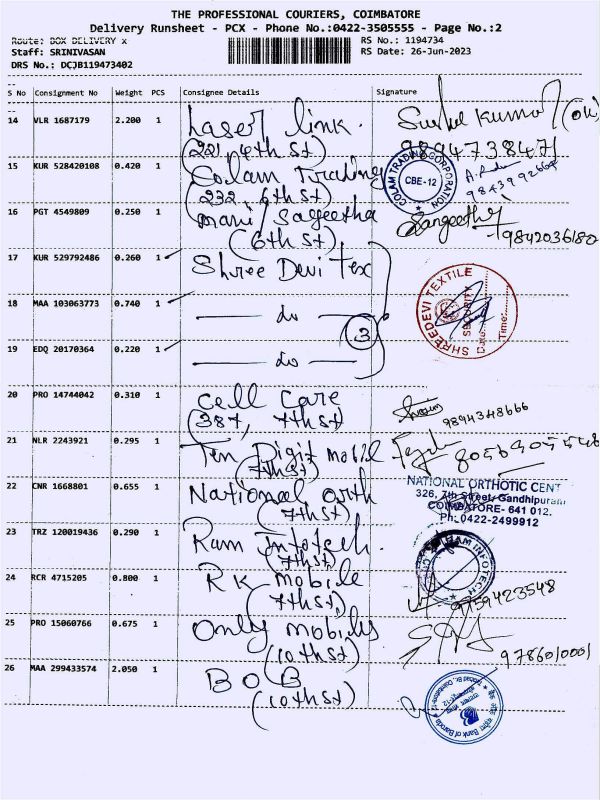 THE PROFESSIONAL COURIERS, COIMBATORE
Delivery Runsheet - PCX - Phone No.:0422-3505555 - Page No.:2
Route: BOX DELIVERY x
RS No.: 1194734
Staff: SRINIVASAN
RS Date: 26-Jun-2023
DRS No.: DCJB119473402
S No Consignment No Weight PCS Consignee Details Signature
14 VLR 1687179 2.200 1 Laser link.
(221 4th St)
9894738471
15 KUR 528420108 0.420 1 Colam Trading
(232, 6th St)
COLAM TRADING CORPORATION
CBE-12
16 PGT 4549809 0.250 1 mani / Sageetha
(6th St)
Sangeetha
9842036180
17 KUR 529792486 0.260 1 Shree Devi Tex
18 MAA 103063773 0.740 1 do
3
SHREEDEVI TEXTILE
SECURITY
Date:
Time:
19 EDQ 20170364 0.220 1 do
20 PRO 14744042 0.310 1 Cell Care
(387, 7th St)
9894348666
21 NLR 2243921 0.295 1 Ten Digit mobil
(7th St)
22 CNR 1668801 0.655 1 National orth
(7th St)
NATIONAL ORTHOTIC CENT
326, 7th Street, Gandhipuram
COIMBATORE- 641 012.
Ph: 0422-2499912
23 TRZ 120019436 0.290 1 Ram Infotech.
(7th St,
INFOTECH
24 RCR 4715205 0.800 1 RK mobile
(7th St,
9159423548
25 PRO 15060766 0.675 1 Only mobiles
(10th St)
9786010001
26 MAA 299433574 2.050 1 BOB
(10th St)
Bank of Baroda